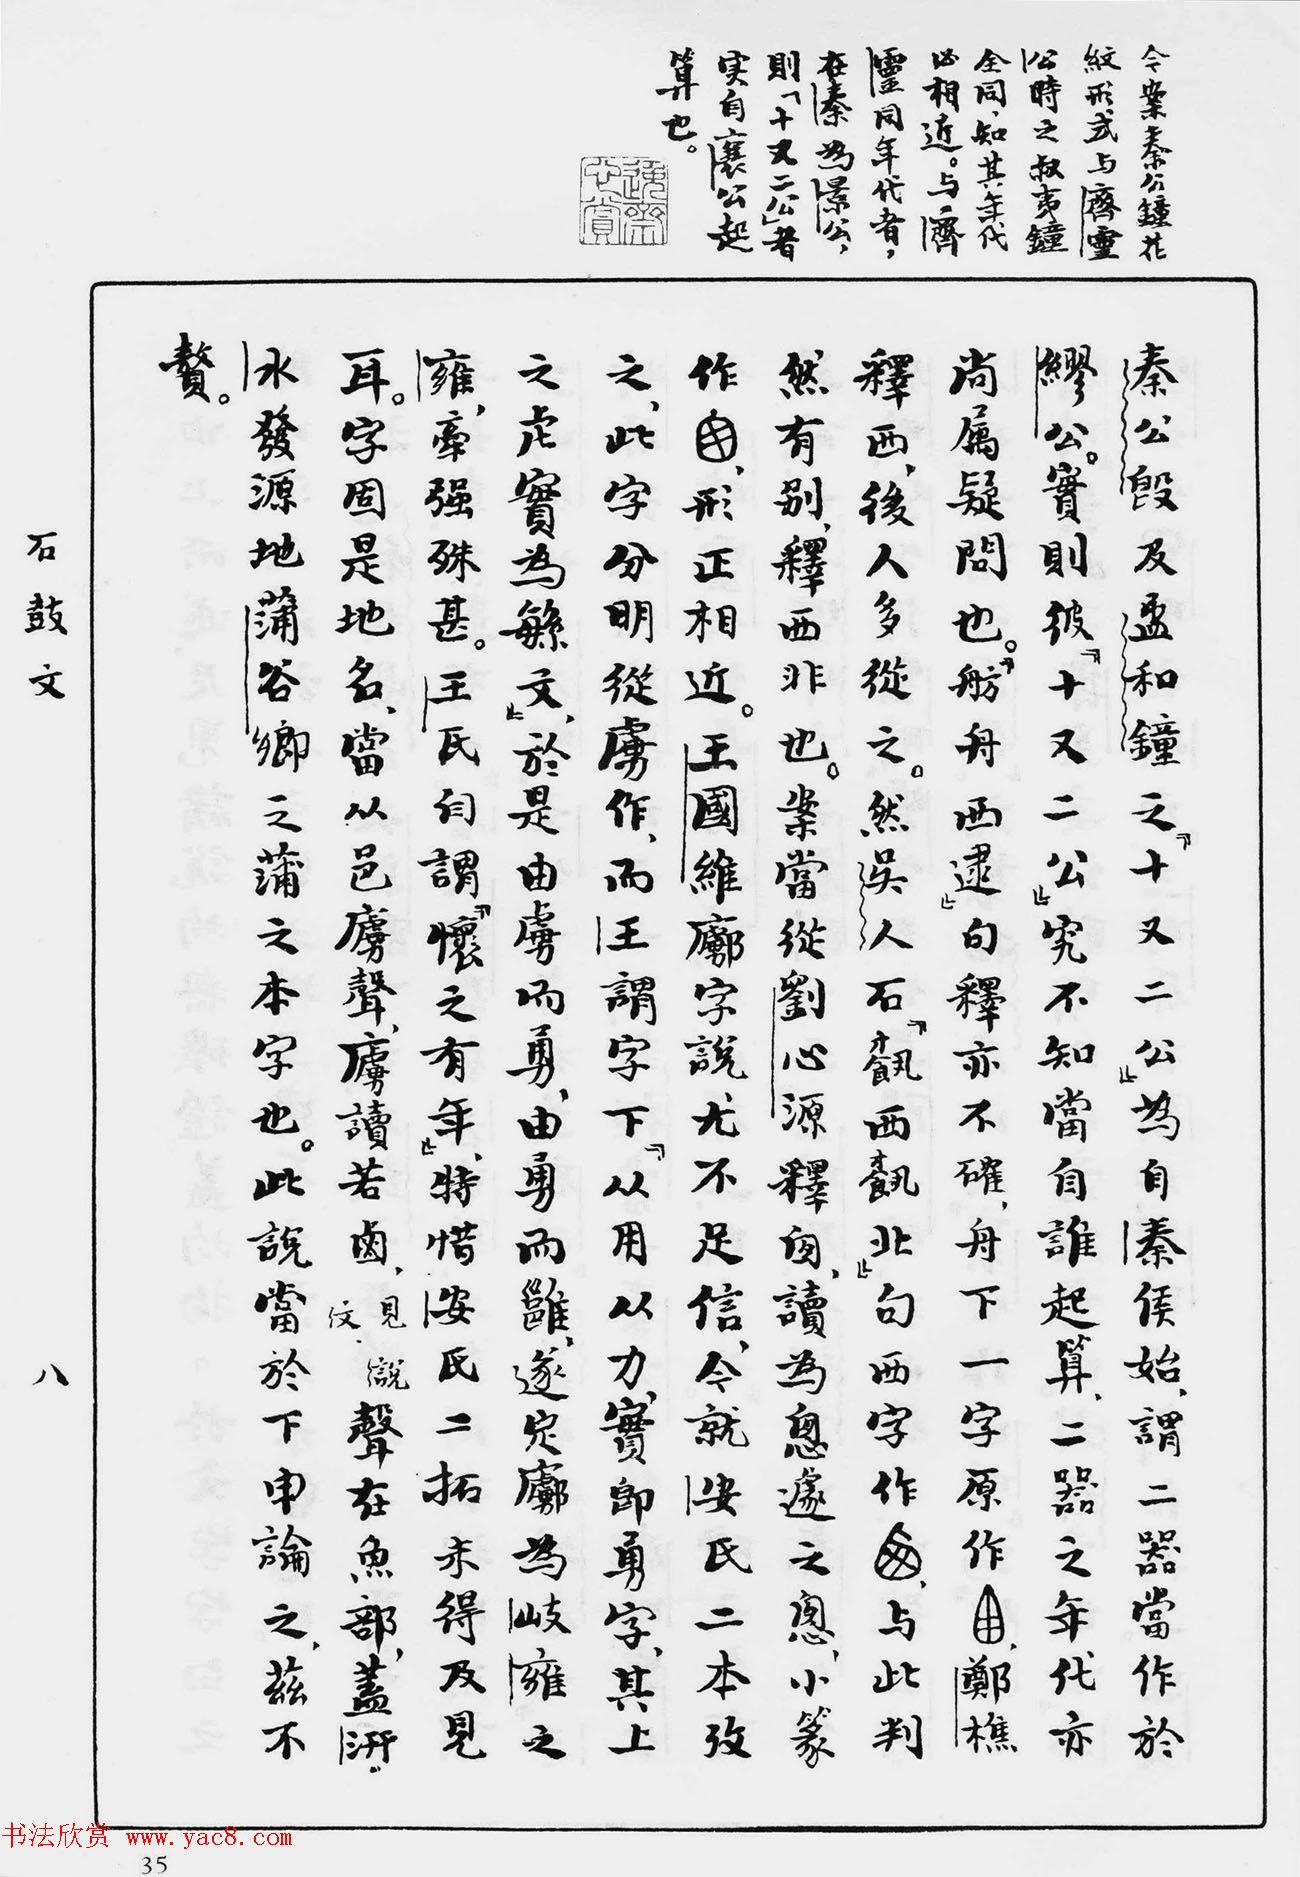 今案秦公鐘花
紋形式与齊靈
公時之叔夷鐘
全同，知其年代
必相近。与齊
靈同年代者，
在秦為景公，
則「十又二公」者
実自襄公起
算也。
秦公𣪘及盄和鐘之「十又二公」為自秦侯始，謂二器當作於
繆公。實則彼「十又二公」究不知當自誰起算，二器之年代亦
尚属疑問也。「舫舟西逮」句釋亦不確，舟下一字原作，鄭樵
釋西，後人多從之。然吳人石「西北」句西字作，与此判
然有别，釋西非也。案當從劉心源釋囪，讀為悤遽之悤，小篆
作，形正相近。王國維廓字說尤不足信，今就安氏二本攷
之，此字分明從虜作，而王謂字下「从用从力，實即勇字，其上
之虍實為繇文」，於是由虜而勇，由勇而雝，遂定廓為岐雍之
雍，牽强殊甚。王氏自謂「懷之有年」，特惜安氏二拓未得及見
耳。字固是地名，當从邑虜聲，虜讀若鹵，見說文．聲在魚部，蓋汧
水發源地蒲谷鄉之蒲之本字也。此説當於下申論之，兹不
贅。
石鼓文
八
书法欣赏 www.yac8.com
35